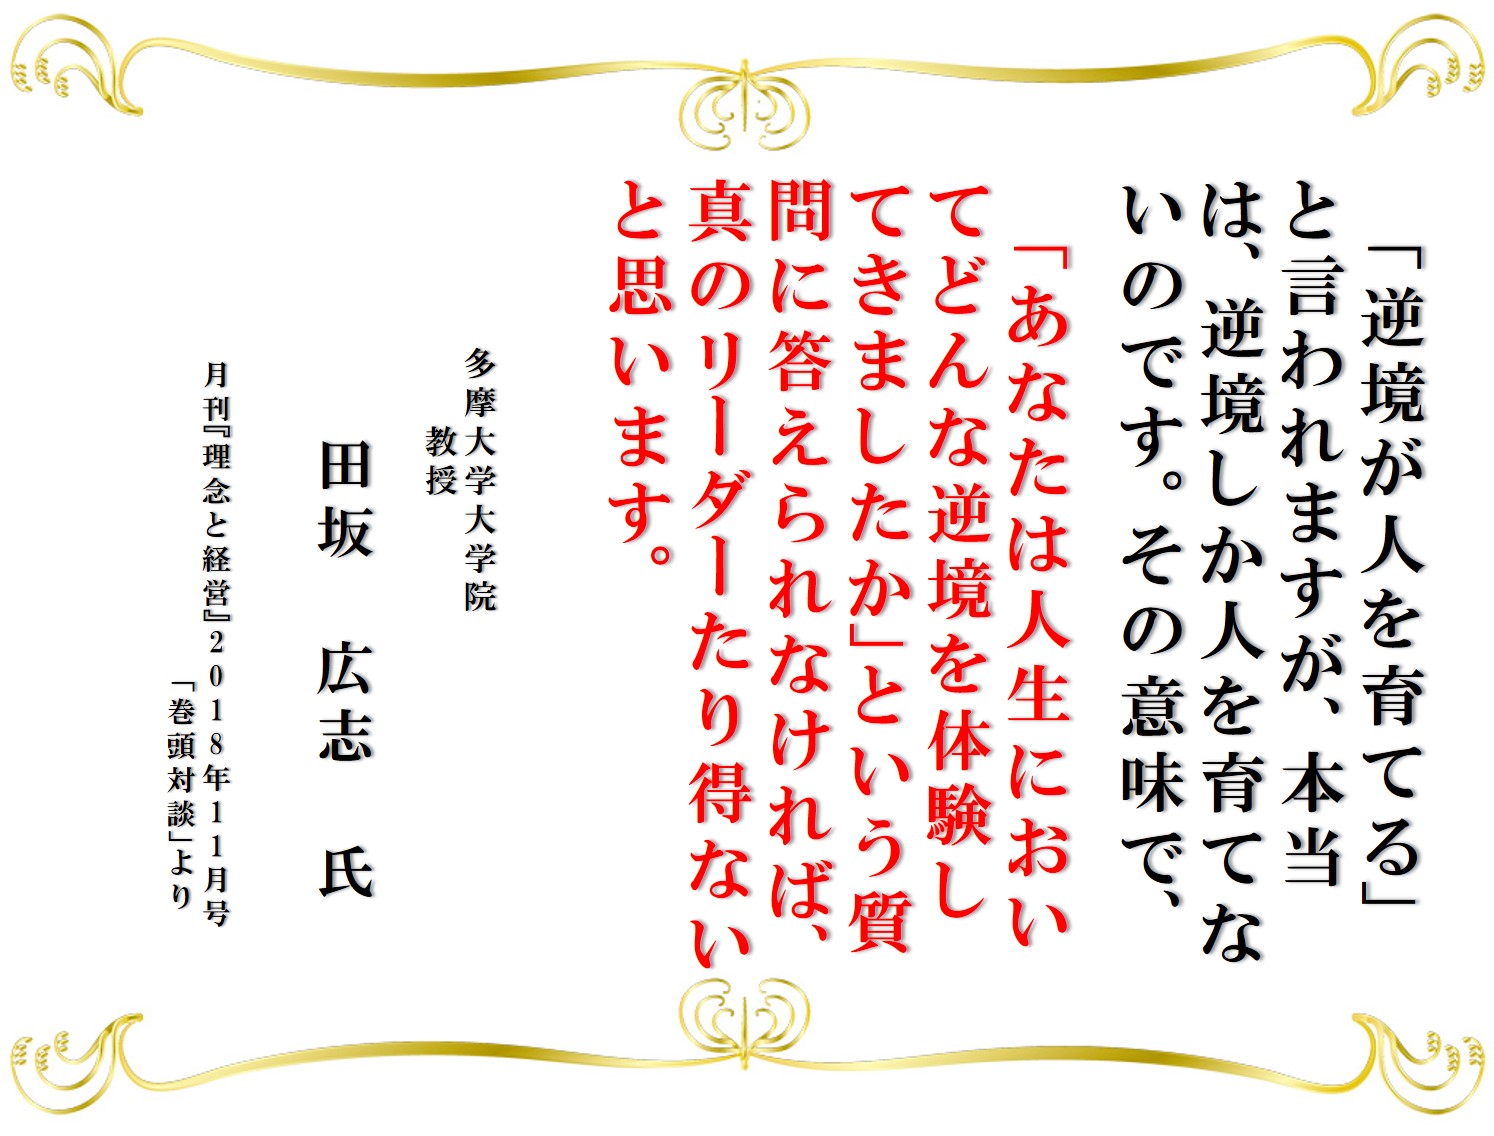 「逆境が人を育てる」
と言われますが、本当
は、逆境しか人を育てな
いのです。その意味で、
「あなたは人生におい
てどんな逆境を体験し
てきましたか」という質
問に答えられなければ、
真のリーダーたり得ない
と思います。
多摩大学大学院
教授
田坂　広志　氏
月刊『理念と経営』２０１８年１１月号
「巻頭対談」より